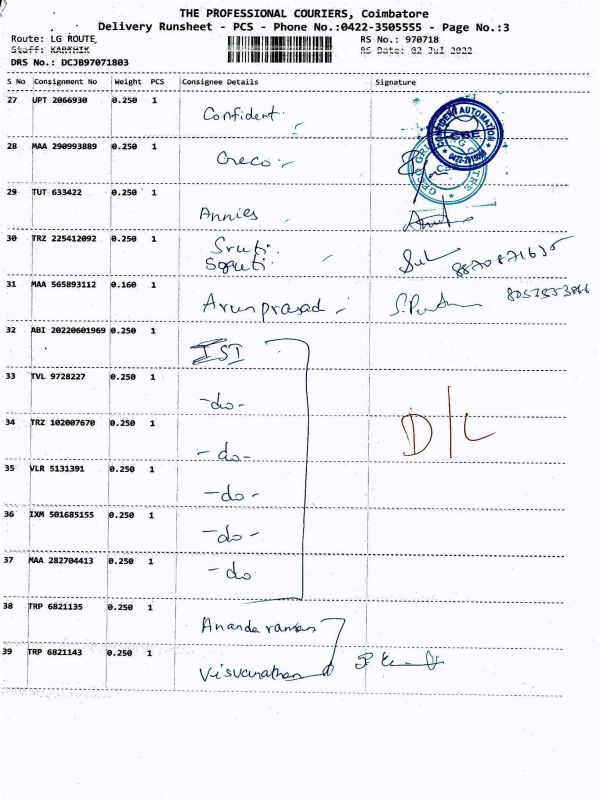 THE PROFESSIONAL COURIERS, Coimbatore
Delivery Runsheet - PCS - Phone No.:0422-3505555 - Page No.:3
Route: LG ROUTE, RS No.: 970718
Staff: KARTHIK RS Date: 02 Jul 2022
DRS No.: DCJB97071803
S No Consignment No Weight PCS Consignee Details Signature
27 UPT 2066930 0.250 1 Confident
CONFIDENT AUTOMATION
CBE
28 MAA 290993889 0.250 1 Greco
29 TUT 633422 0.250 1 Annies
30 TRZ 225412092 0.250 1 Sruti
8870871635
31 MAA 565893112 0.160 1 Arunprasad
32 ABI 20220601969 0.250 1 ISI
33 TVL 9728227 0.250 1 -do-
34 TRZ 102007670 0.250 1 -do- D/L
35 VLR 5131391 0.250 1 -do-
36 IXM 501685155 0.250 1 -do-
37 MAA 282704413 0.250 1 -do
38 TRP 6821135 0.250 1 Anandaraman
39 TRP 6821143 0.250 1 Visvanathan